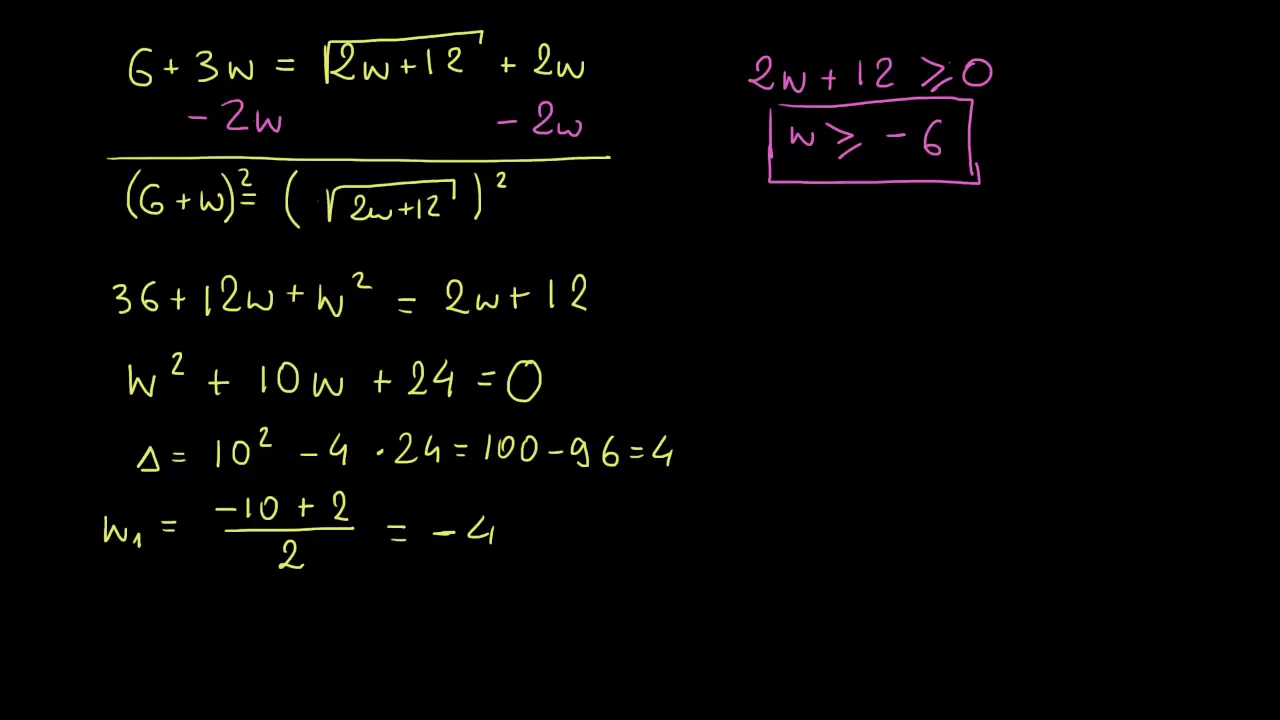 6 + 3w = √2w + 12 + 2w
- 2w - 2w
(6 + w)² = (√2w + 12)²
36 + 12w + w² = 2w + 12
w² + 10w + 24 = 0
Δ = 10² - 4 · 24 = 100 - 96 = 4
w₁ = -10 + 2 / 2 = -4
2w + 12 ⩾ 0
w ⩾ - 6